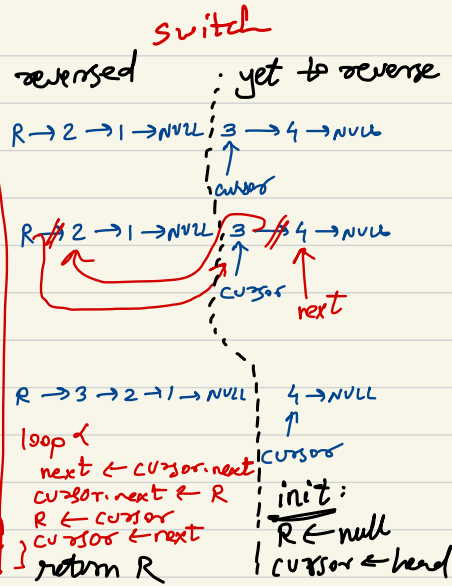 switch
reversed yet to reverse
R → 2 → 1 → NULL 3 → 4 → NULL
cursor
R → 2 → 1 → NULL 3 → 4 → NULL
cursor
next
R → 3 → 2 → 1 → NULL 4 → NULL
cursor
loop {
next ← cursor.next
cursor.next ← R
R ← cursor
cursor ← next
}
return R
init:
R ← null
cursor ← head